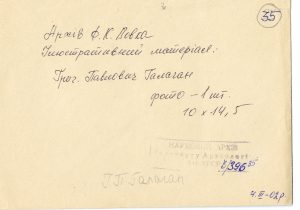 35
Архів Ф. К. Вовка
Ілюстративний матеріал:
Григ. Павлович Галаган
фото – 1 шт.
10 х 14,5
НАУКОВИЙ АРХІВ
Г.П. Галаган
4.III-02р